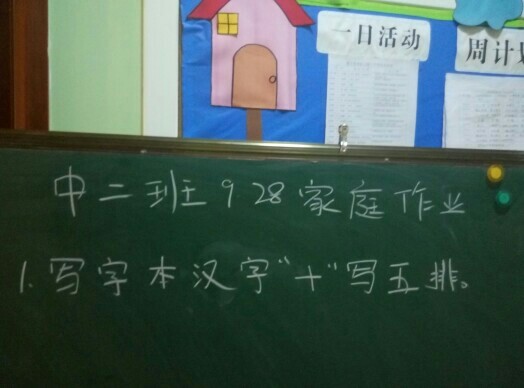 一日活动
周计划
中二班 9 28 家庭作业
1. 写字本汉字“十”写五排。